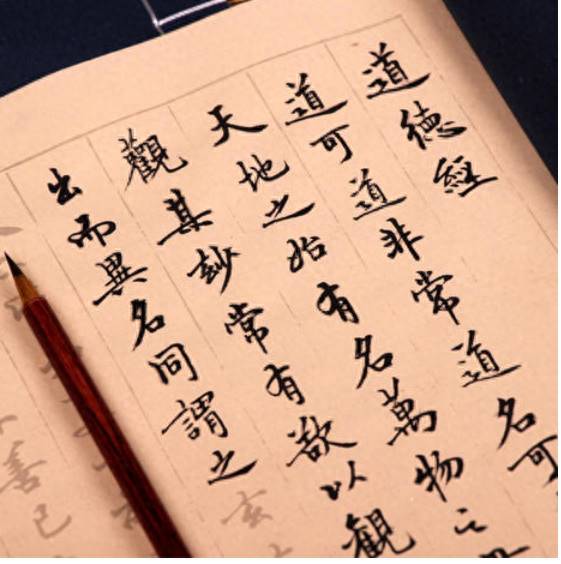 道德經
道可道非常道名可
天地之始有名萬物之
觀其玅常有欲以觀
出而異名同謂之玄
善已